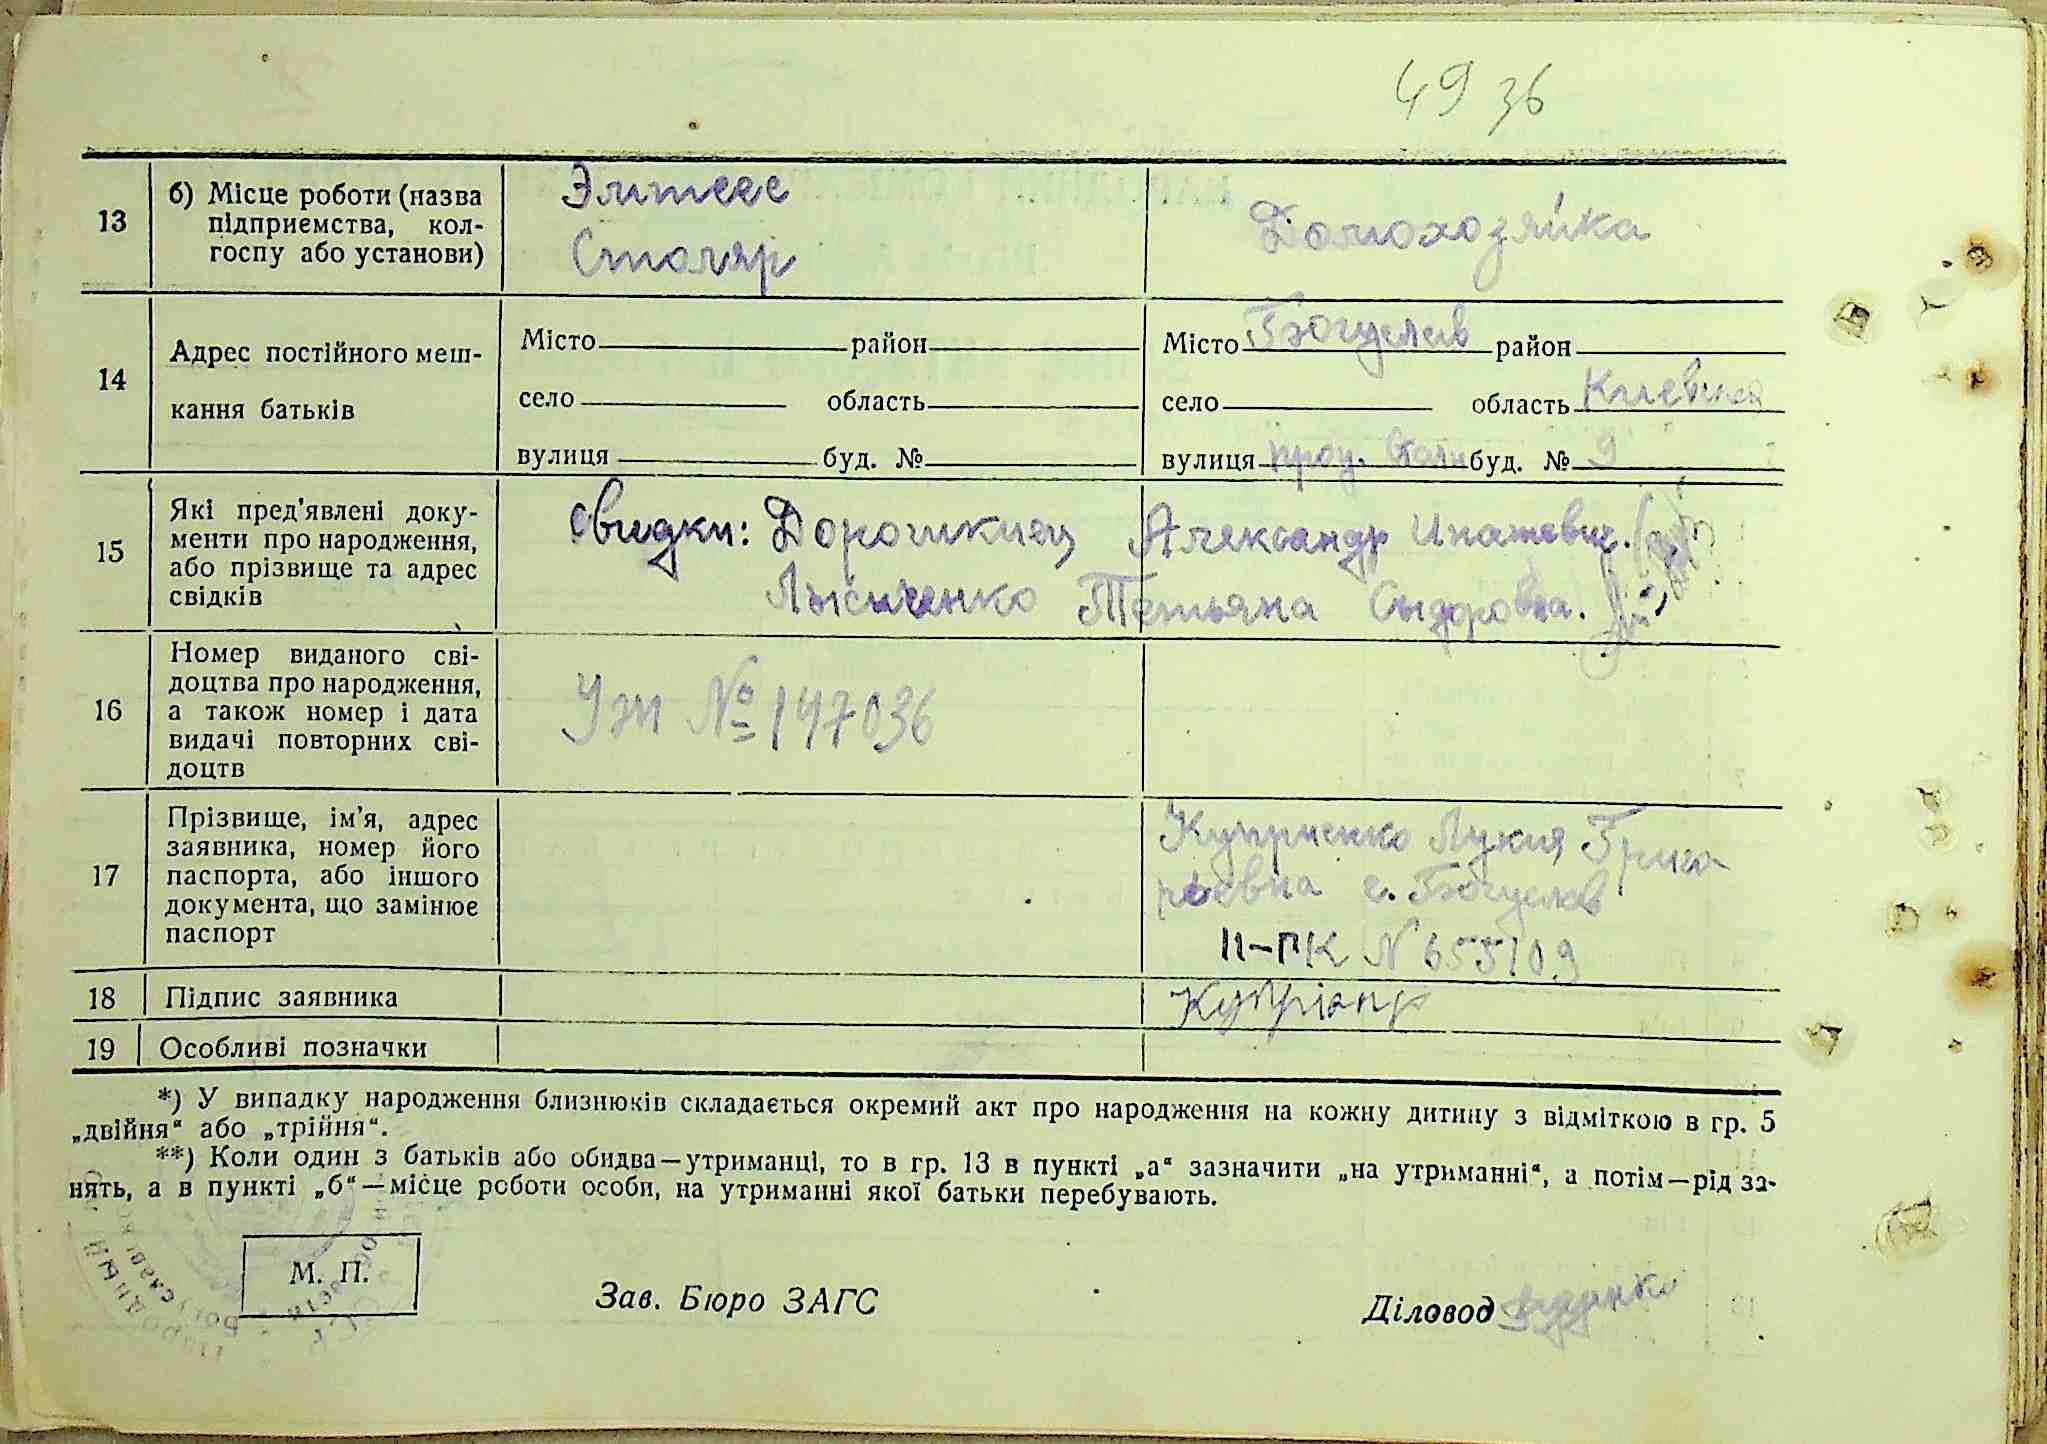 49 36
13
б) Місце роботи (назва
підприємства, кол-
госпу або установи)
Столяр
Домохозяйка
14
Адрес постійного меш-
кання батьків
Місто район
село область
вулиця буд. №
Місто Богуслав район
село область Киевская
вулиця буд. № 9
15
Які пред'явлені доку-
менти про народження,
або прізвище та адрес
свідків
свидки: Александр
Тетьяна Сыдоровна.
16
Номер виданого сві-
доцтва про народження,
а також номер і дата
видачі повторних сві-
доцтв
№ 147036
17
Прізвище, ім'я, адрес
заявника, номер його
паспорта, або іншого
документа, що замінює
паспорт
Куприенко Лукия Григо
рьевна с. Богуслав
II-ГК N 655109
18
Підпис заявника
19
Особливі позначки
*) У випадку народження близнюків складається окремий акт про народження на кожну дитину з відміткою в гр. 5
„двійня“ або „трійня“.
**) Коли один з батьків або обидва—утриманці, то в гр. 13 в пункті „а“ зазначити „на утриманні“, а потім—рід за-
нять, а в пункті „б“—місце роботи особи, на утриманні якої батьки перебувають.
М. П.
Зав. Бюро ЗАГС
Діловод